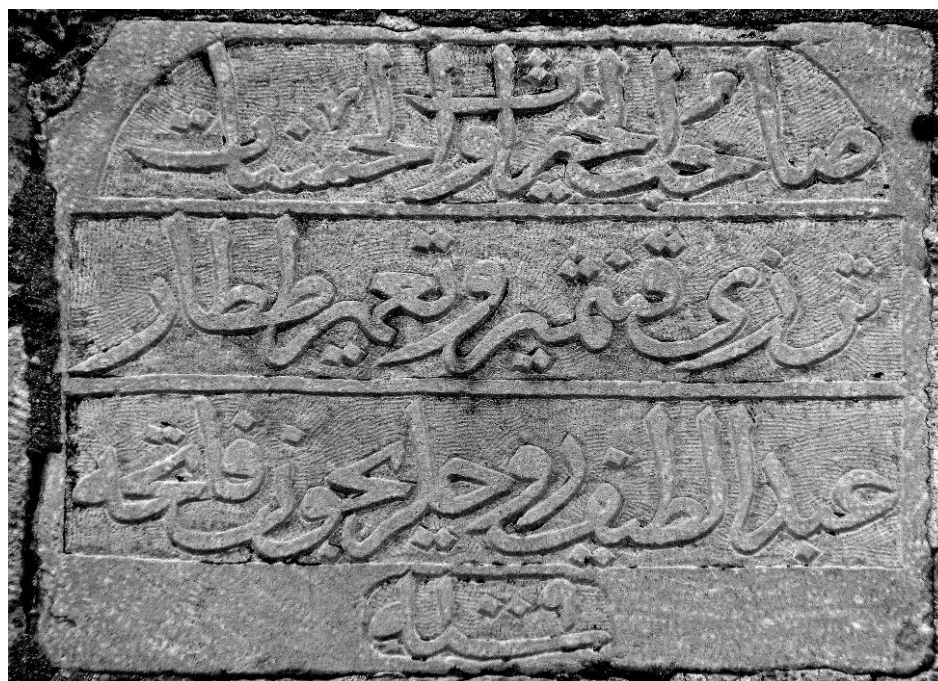 صاحب الخيرات والحسنات
ترزى وتعمير ططار
عبد الطيف روحلريچون فاتحه
سنه